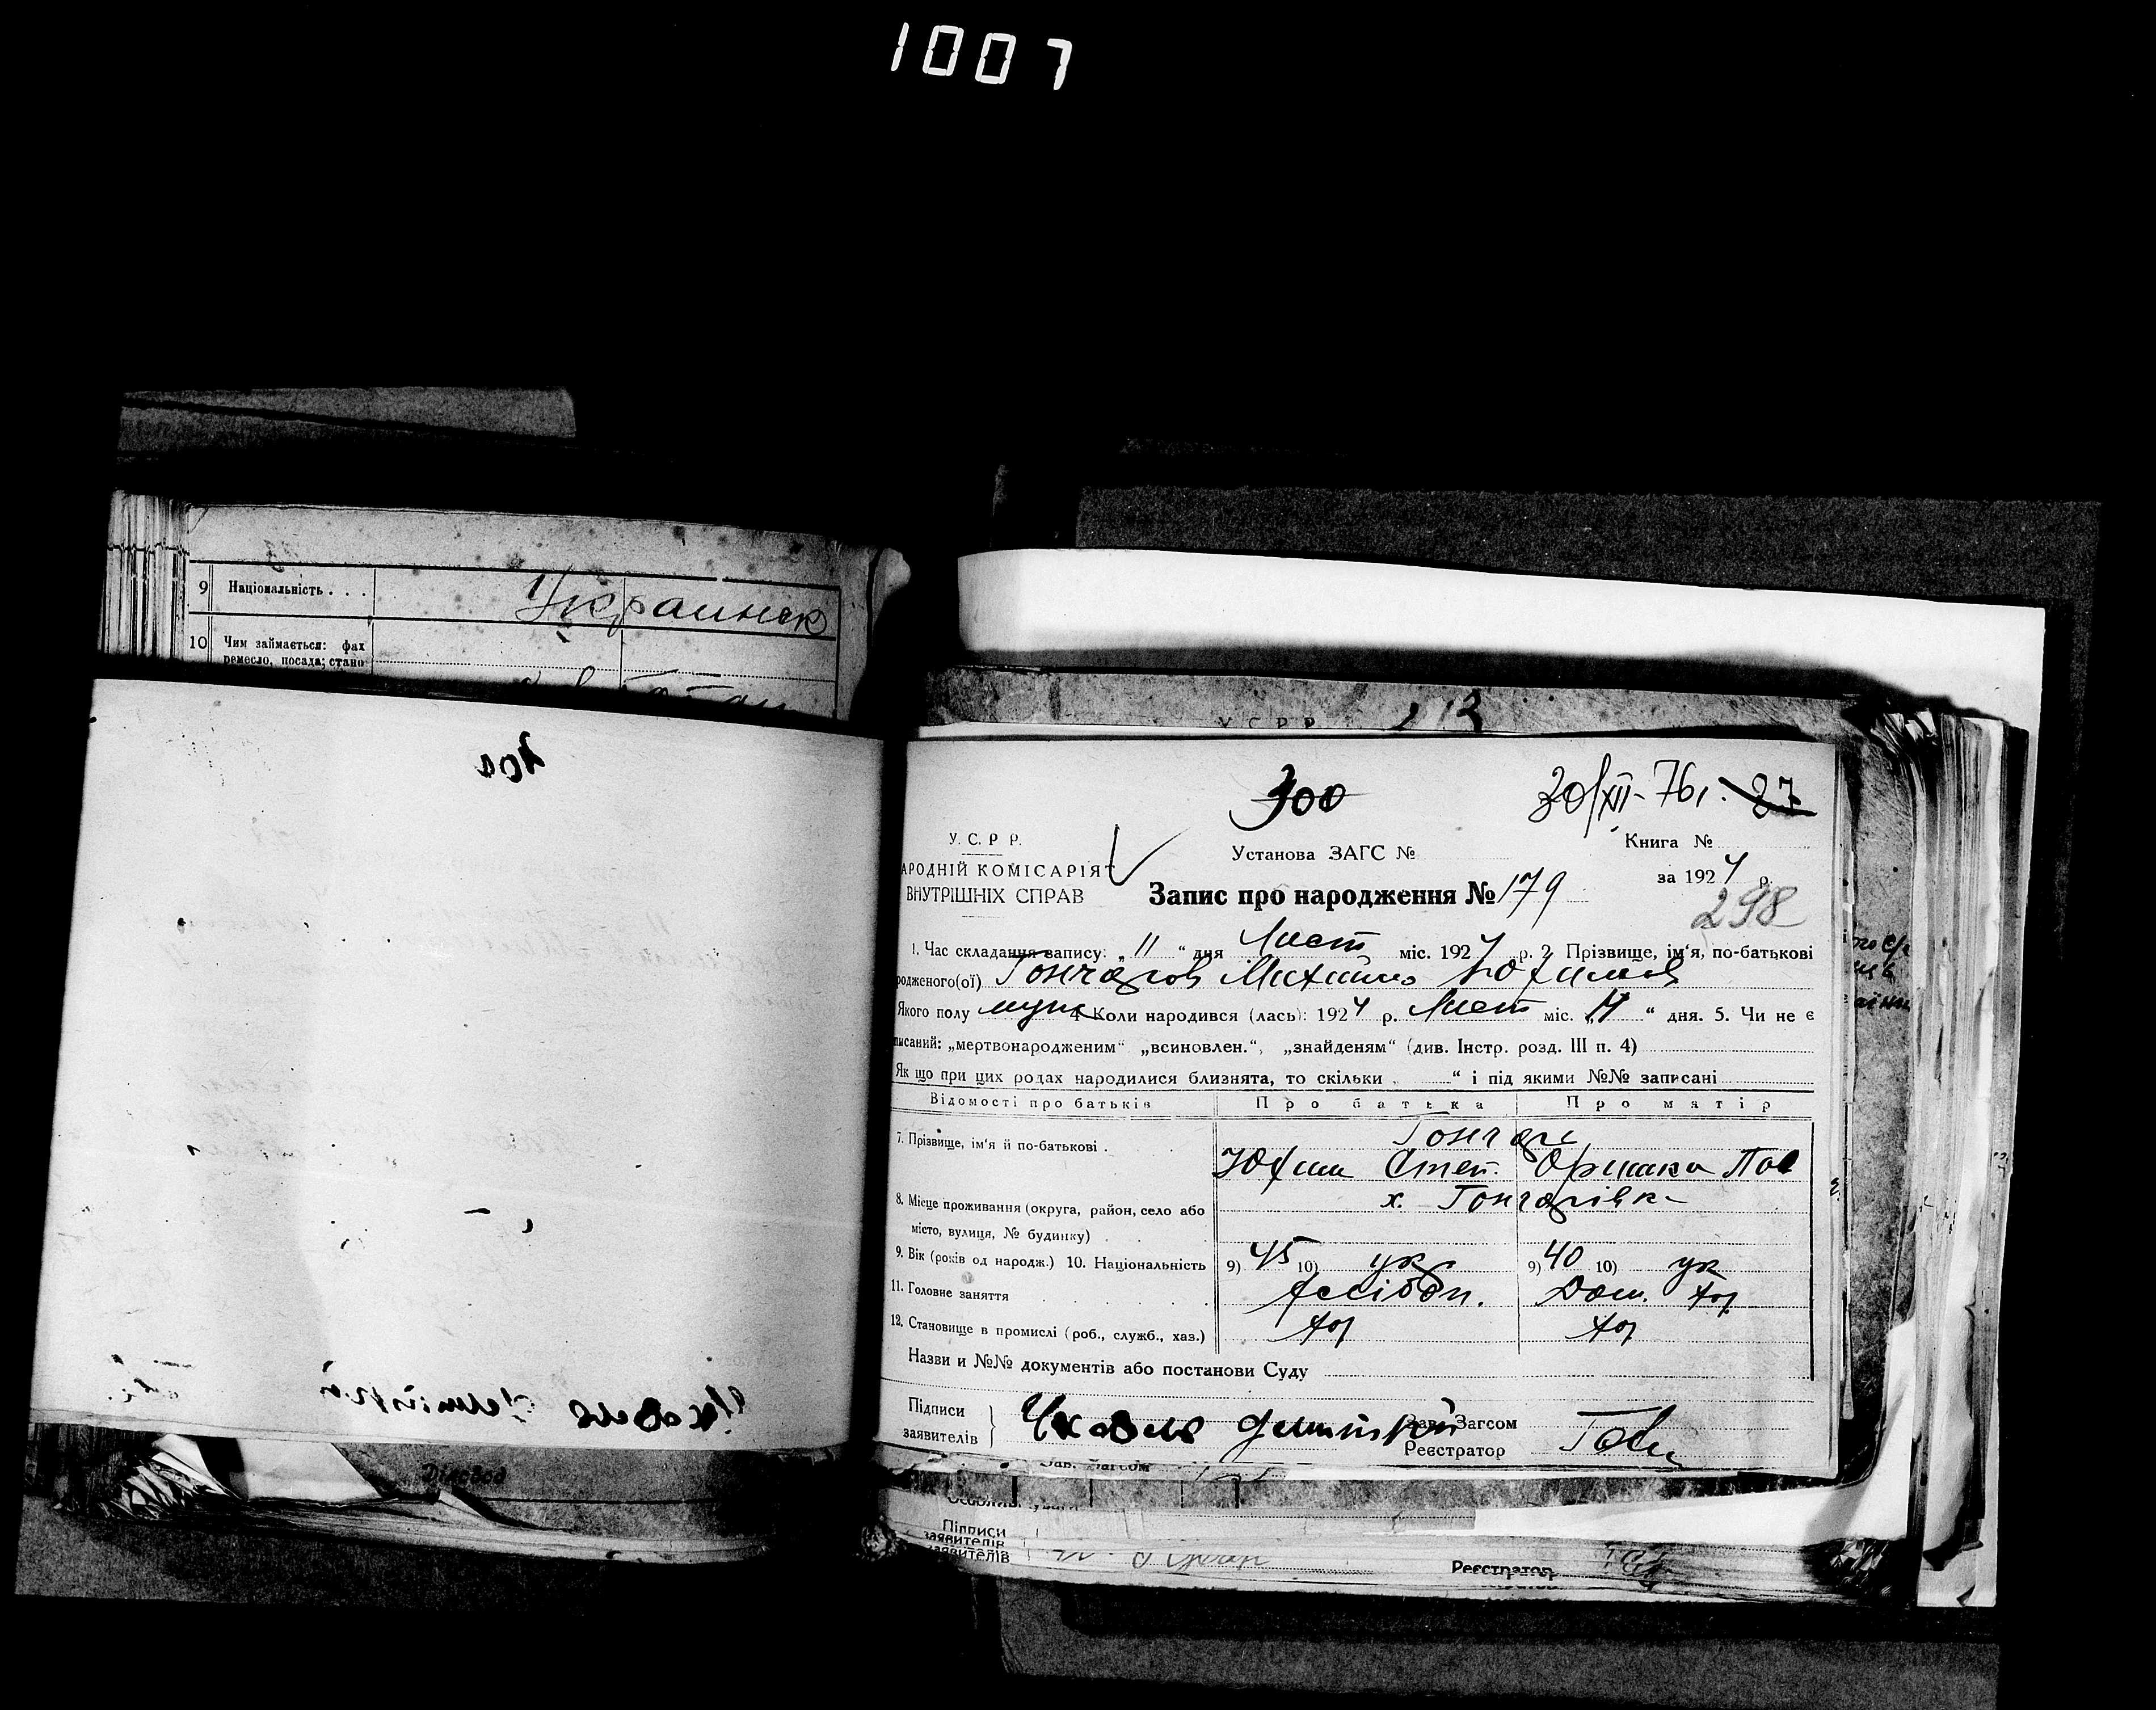 1007
9 Національність . . .
Украинск
10 Чим займається: фах
ремесло, посада; стано
Діловод
У С Р Р
300
30/XII-76 г. 27
У. С. Р Р.
АРОДНІЙ КОМІСАРІЯТ
ВНУТРІШНІХ СПРАВ
Установа ЗАГС №
Книга №
Запис про народження № 179
за 1924 р.
298
1. Час складання запису: „ 11 “ дня Лист міс. 1924 р. 2 Прізвище, ім‘я, по-батькові
родженого(ої) Гончаров Михайло Юхимов
Якого полу муж 4 Коли народився (лась): 1924 р. Лист міс. „ “ дня. 5. Чи не є
писаний: „мертвонародженим“ „всиновлен.“, „знайденям“ (див. Інстр. розд. III п. 4)
Як що при цих родах народилися близнята, то скільки „ “ і під якими №№ записані
Відомості про батьків Про батька Про матір
7. Прізвище, ім‘я й по-батькові . Гончар
Юхим Степ. Оришка Пав
8. Місце проживання (округа, район, село або х. Гончарівка
місто, вулиця, № будинку)
9. Вік (років од народж.) 10. Національність 9) 45 10) укр 9) 40 10) ук
11. Головне заняття Хлібоп. Дом. хоз
12. Становище в промислі (роб., служб., хаз.) хоз хоз
Назви и №№ документів або постанови Суду
Підписи
заявителів
Зав. Загсом
Реєстратор
Зав. Загсом
Підписи
заявителів
заявителів
Реєстратор